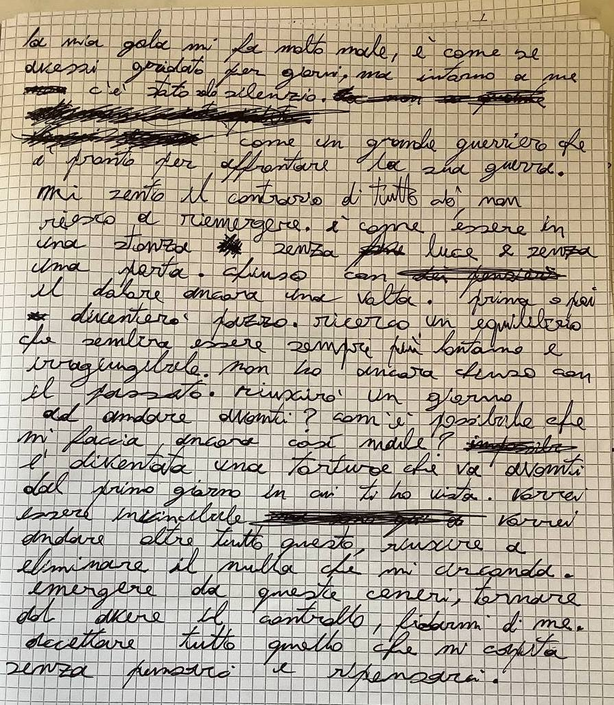 la mia gola mi fa molto male, è come se
avessi gridato per giorni, ma intorno a me
c'è stato del silenzio.
come un grande guerriero che
è pronto per affrontare la sua guerra.
mi sento il contrario di tutto ciò, non
riesco a riemergere. è come essere in
una stanza senza luce e senza
una porta. chiuso con
il dolore ancora una volta. prima o poi
diventerò pazzo. ricerco un equilibrio
che sembra essere sempre più lontano e
irraggiungibile. non ho ancora chiuso con
il passato. riuscirò un giorno
ad andare avanti? com'è possibile che
mi faccia ancora così male?
è diventata una tortura che va avanti
dal primo giorno in cui ti ho vista. vorrei
essere invincibile vorrei
andare oltre tutto questo, riuscire a
eliminare il nulla che mi circonda.
emergere da queste ceneri, tornare
ad avere il controllo, fidarmi di me.
accettare tutto quello che mi capita
senza pensarci e ripensarci.